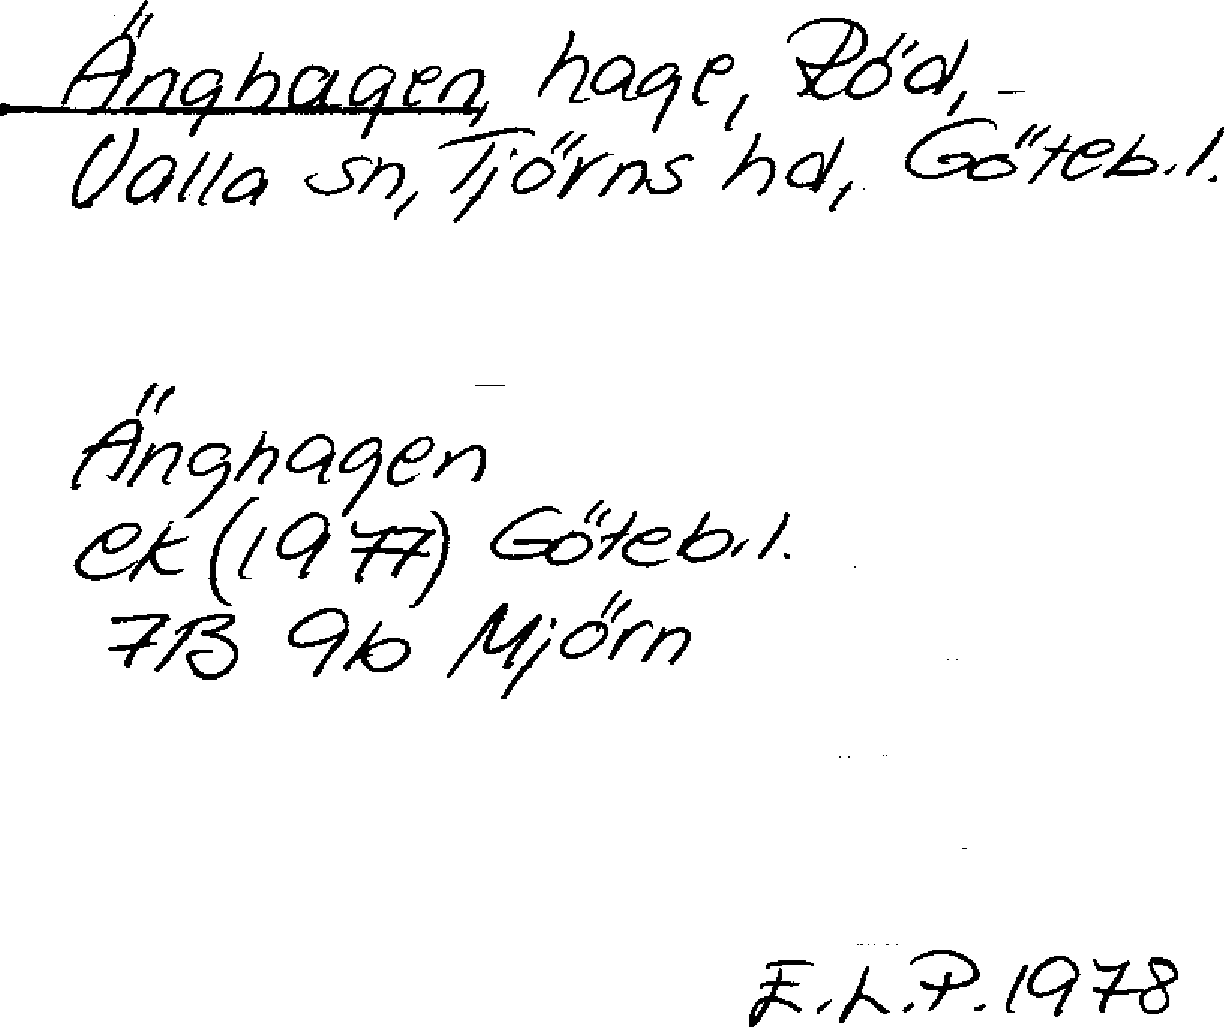 Änghagen, hage, Röd,
Valla sn, Tjörns hd, Göteb.l.
Änghagen
ek (1977) Göteb.l.
7B 9b Mjörn
E.L.P. 1978